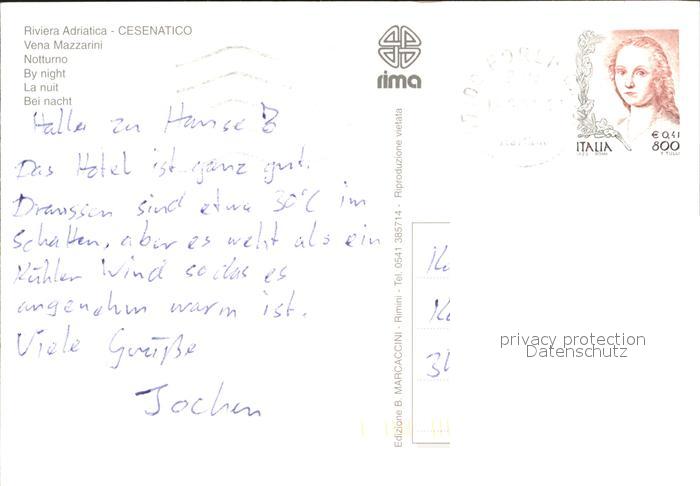 Riviera Adriatica - CESENATICO
Vena Mazzarini
Notturno
By night
La nuit
Bei nacht
rima
Hallo zu Hause
Das Hotel ist ganz gut.
Draussen sind etwa 30°C im
Schatten, aber es weht als ein
Kühler Wind sodas es
angenehm warm ist.
Viele Grüße
Jochen
Edizione B. MARCACCINI - Rimini - Tel. 0541 385714 - Riproduzione vietata
€ 0,41
ITALIA 800
T. TULLI
privacy protection
Datenschutz